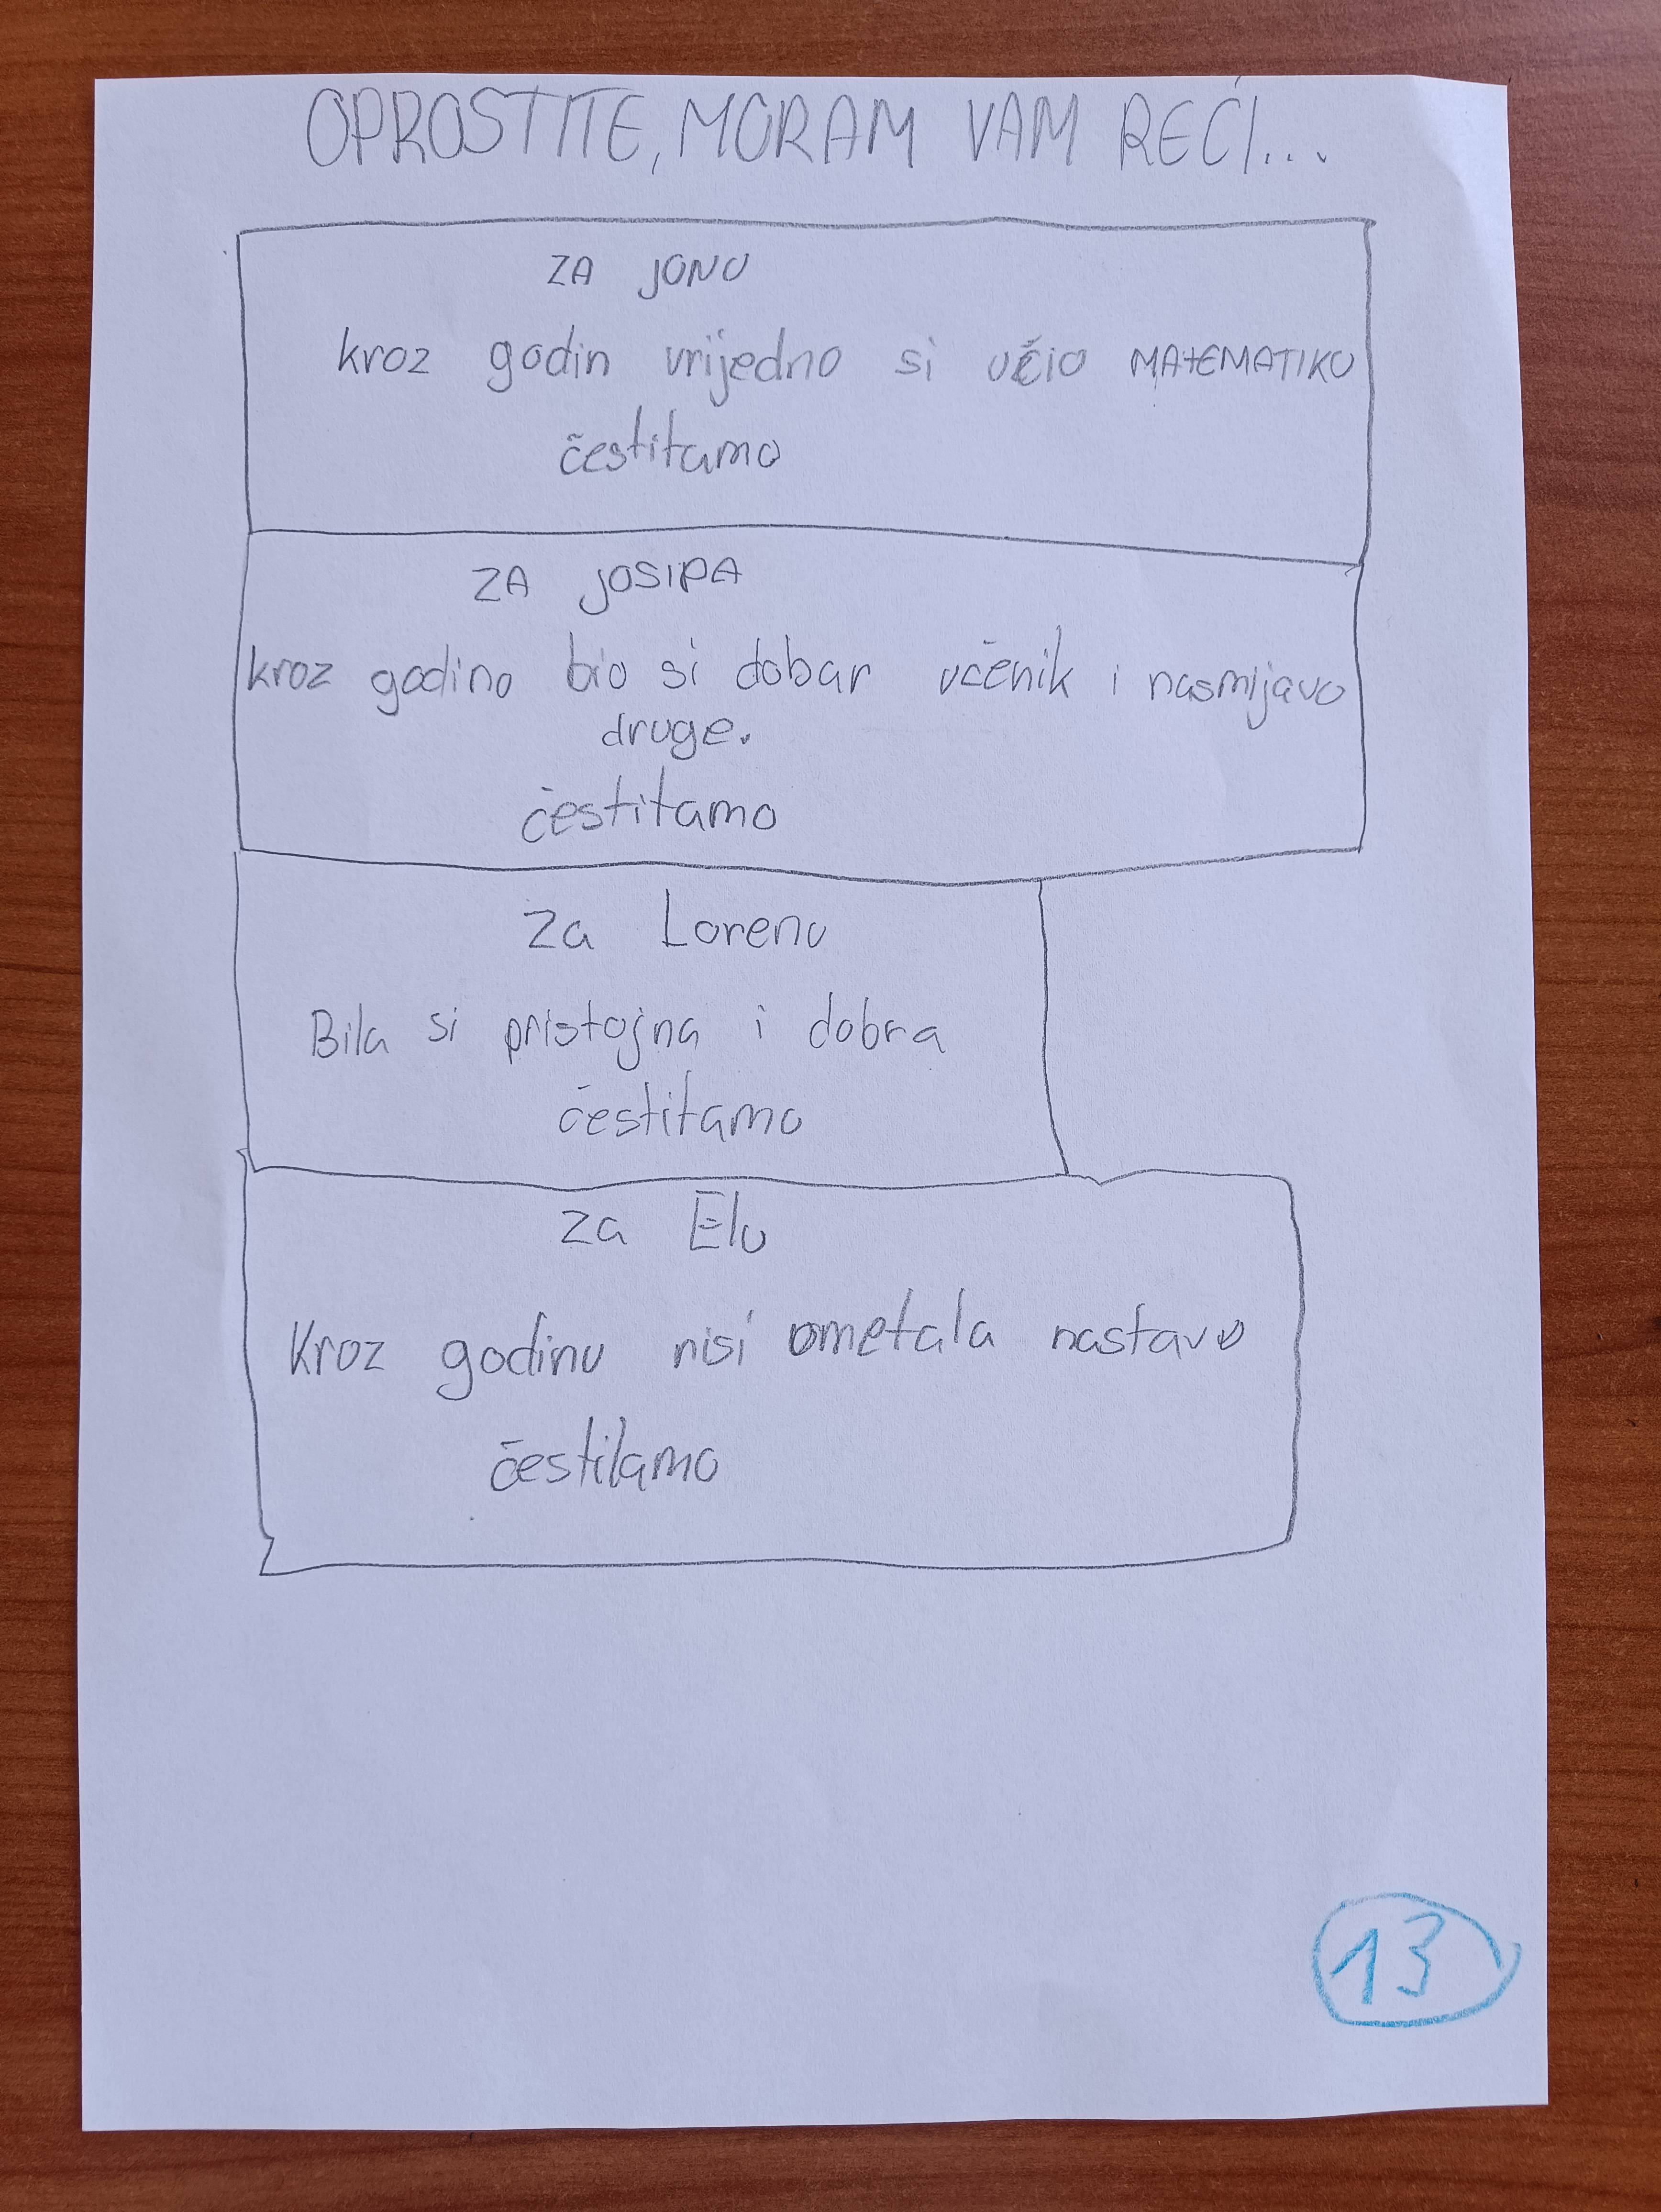 OPROSTITE, MORAM VAM REĆI...
ZA JONU
kroz godin vrijedno si učio MATEMATIKU
čestitamo
ZA JOSIPA
kroz godinu bio si dobar učenik i nasmijavo
druge.
čestitamo
Za Lorenu
Bila si pristojna i dobra
čestitamo
za Elu
Kroz godinu nisi ometala nastavu
čestitamo
13